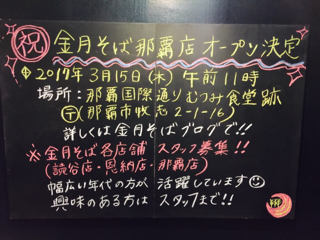 祝 金月そば那覇店オープン決定
2017年3月15日(水)午前11時
場所:那覇国際通りむつみ食堂跡
〒(那覇市牧志2-1-16)
詳しくは金月そばブログで!!
※金月そば各店舗 スタッフ募集!!
(読谷店・恩納店・那覇店)
幅広い年代の方が 活躍しています
興味のある方は スタッフまで!!